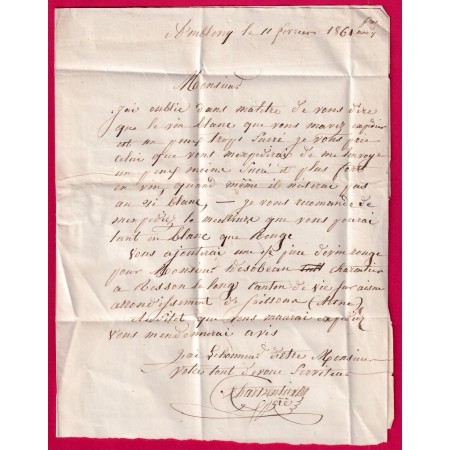 Ambleny le 11 fevrier 1861
Monsieur
J'ai oublié dans ma lettre de vous dire
que le vin blanc que vous mavez expedier
est un peux trops sucré je vous prie
celui que vous mexpedirai de me lenvoyer
un peux moins sucré et plus fort
en vin, quand même il ne serai pas
au si blanc, — je vous recomande de
mexpediez le meilleure que vous pourai
tant en blanc que Rouge
Vous ajouterai une de vin rouge
pour Monsieur charontier
a Resson le long canton de Vic sur aisne
arrondissement de soissons (Aisne)
Ausitôt que vous maurai expediez
vous mendonnerai avis
jai Lhonneur detre Monsieur
votre tout devoué Serviteur